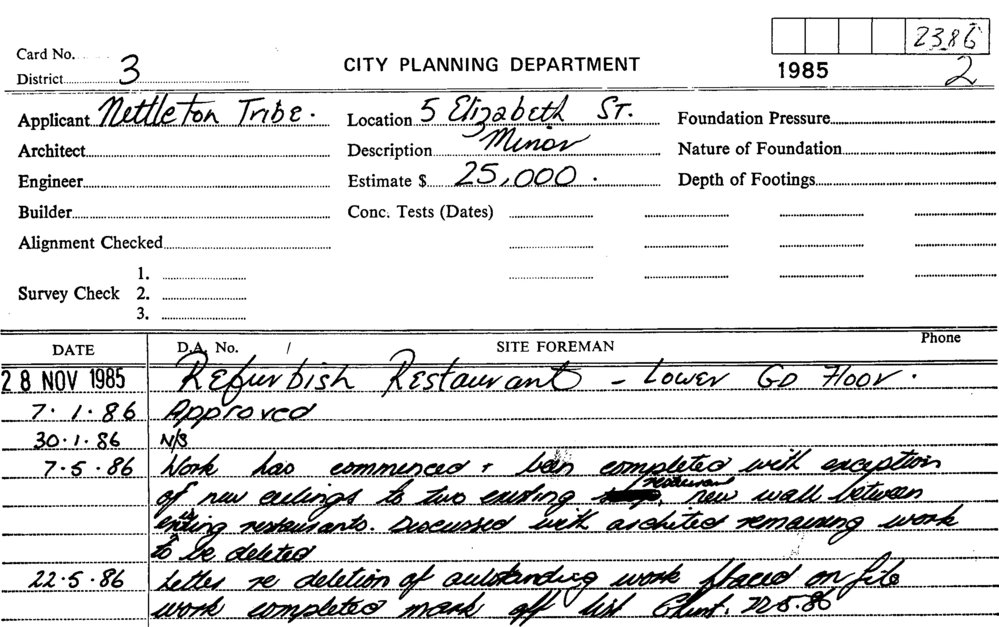 2386
Card No.
District 3
CITY PLANNING DEPARTMENT
1985 2
Applicant Nettleton Tribe.
Location 5 Elizabeth St.
Foundation Pressure
Architect
Description Minor
Nature of Foundation
Engineer
Estimate $ 25,000.
Depth of Footings
Builder
Conc. Tests (Dates)
Alignment Checked
1.
Survey Check 2.
3.
DATE D.A. No. / SITE FOREMAN Phone
28 NOV 1985 Refurbish Restaurant - Lower GD Floor.
7.1.86 Approved
30.1.86 N/S
7.5.86 Work has commenced + been completed with exception
of new ceilings to two existing restaurant, new wall between
existing restaurants. Discussed with architect remaining work
to be deleted
22.5.86 Letter re deletion of outstanding work placed on file
work completed mark off list 22.5.86